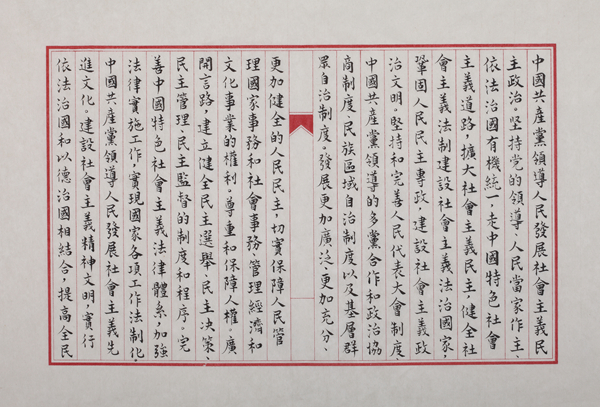 中國共產黨領導人民發展社會主義民
主政治。堅持党的領導、人民當家作主、
依法治國有機統一,走中國特色社會
主義道路,擴大社會主義民主,健全社
會主義法制建設社會主義法治國家,
鞏固人民民主專政,建設社會主義政
治文明。堅持和完善人民代表大會制度、
中國共產黨領導的多黨合作和政治協
商制度、民族區域自治制度以及基層群
眾自治制度。發展更加廣泛、更加充分、
更加健全的人民民主,切實保障人民管
理國家事務和社會事務、管理經濟和
文化事業的權利。尊重和保障人權。廣
開言路,建立健全民主選舉、民主決策、
民主管理、民主監督的制度和程序。完
善中國特色社會主義法律體系,加強
法律實施工作,實現國家各項工作法制化。
中國共產黨領導人民發展社會主義先
進文化。建設社會主義精神文明,實行
依法治國和以德治國相結合,提高全民